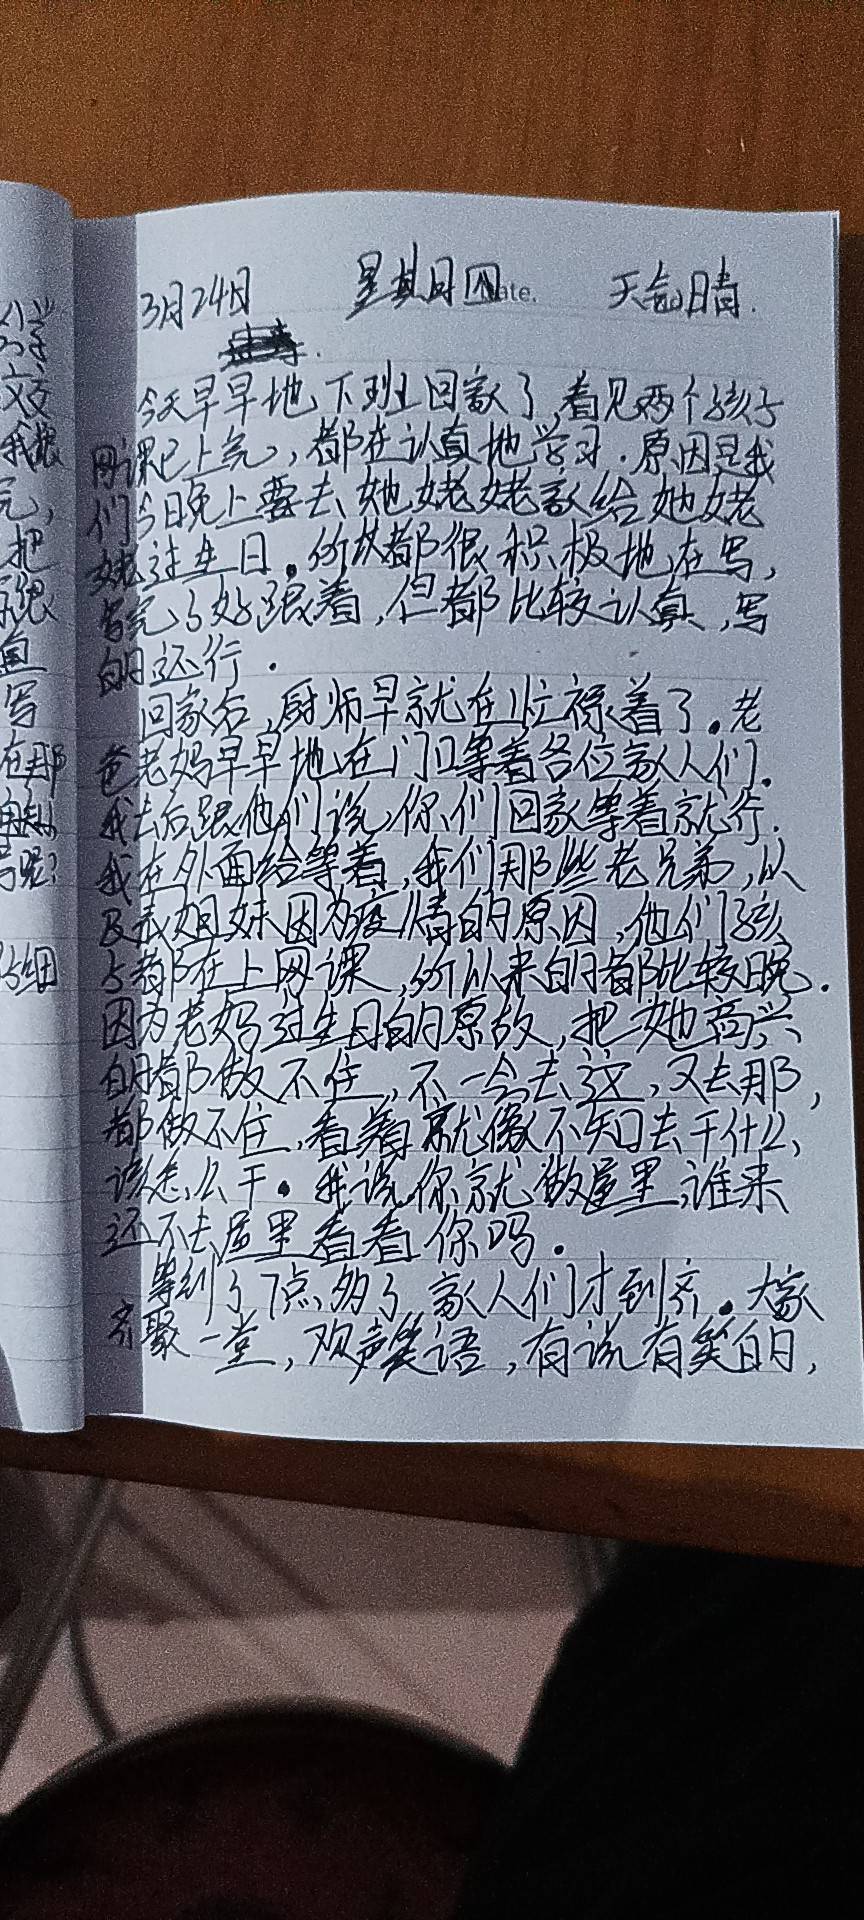 3月24日 星期四 Date. 天气晴.
今天早早地下班回家了,看见两个孩子
网课已上完,都在认真地学习.原因是我
们今日晚上要去她姥姥家给她姥
姥过生日.所以都很积极地在写,
写完了好跟着,但都比较认真,写
的还行.
回家后,厨师早就在忙碌着了.老
爸老妈早早地在门口等着各位家人们.
我去后跟他们说,你们回家等着就行.
我在外面给等着,我们那些老兄弟,以
及表姐妹因为疫情的原因,他们孩
子都在上网课,所以来的都比较晚.
因为老妈过生日的原故,把她高兴
的都做不住,不一会去这,又去那,
都做不住,看着就像不知去干什么,
该怎么干.我说你就做屋里,谁来
还不去屋里看看你吗.
等到了7点多了家人们才到齐.大家
齐聚一堂,欢声笑语,有说有笑的,